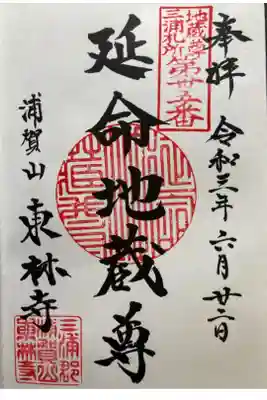 奉拝
令和三年六月廿二日
地蔵尊
三浦札所
第廿五番
延命地蔵尊
浦賀山
東林寺
三浦郡
浦賀山
東林寺